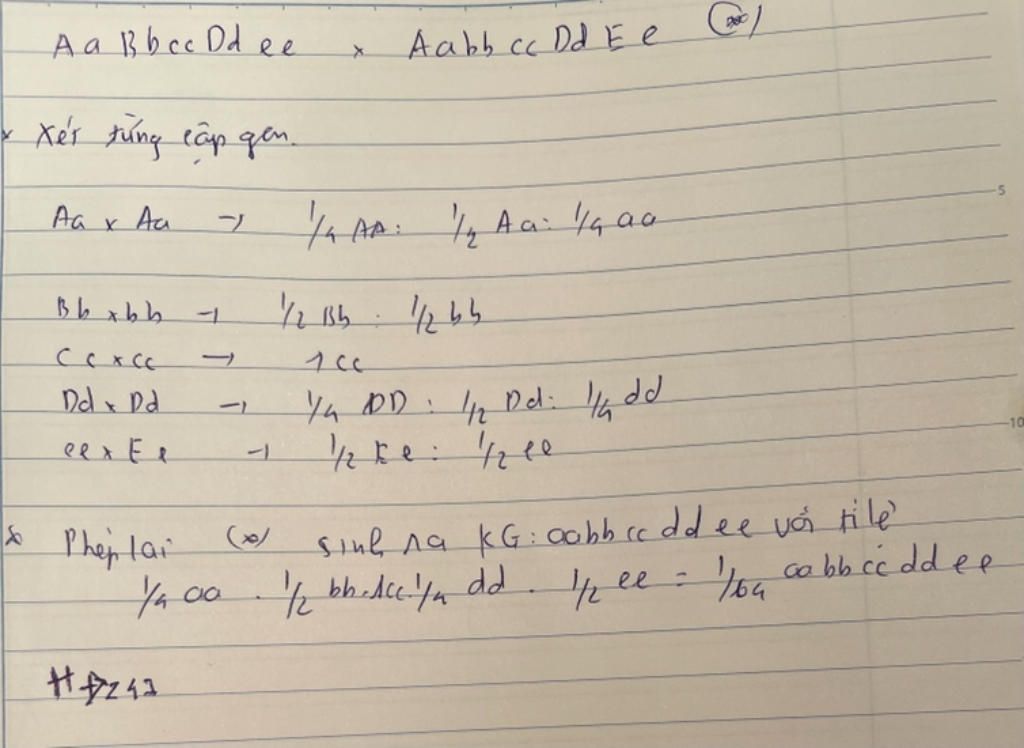 AaBbccDdee x AabbccDdEe (∞)
x Xét từng cặp gen.
Aa x Aa → 1/4 AA : 1/2 Aa : 1/4 aa
5
Bb x bb → 1/2 Bb : 1/2 bb
cc x cc → 1cc
Dd x Dd → 1/4 DD : 1/2 Dd : 1/4 dd
10
ee x Ee → 1/2 Ee : 1/2 ee
Phép lai (∞) sinh ra KG: aabbccddee với tỉ lệ
1/4 aa . 1/2 bb . 1cc . 1/4 dd . 1/2 ee = 1/64 aabbccddee